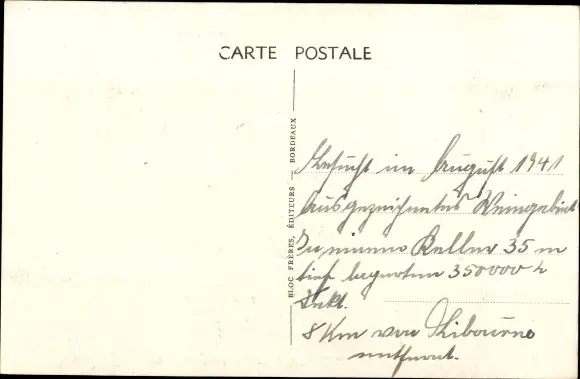 CARTE POSTALE
BLOC FRÈRES, ÉDITEURS — BORDEAUX
Besucht im August 1941
Ausgezeichnetes Weingebiet
In einem Keller 35 m
tief lagerten 350000 h
Sekt.
8 Km von Libourne
entfernt.